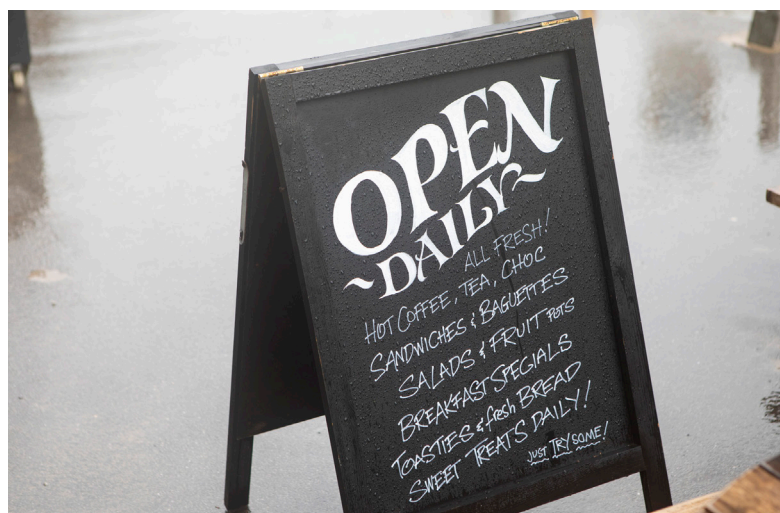 OPEN
~DAILY~
ALL FRESH!
HOT COFFEE, TEA, CHOC
SANDWICHES & BAGUETTES
SALADS & FRUIT POTS
BREAKFAST SPECIALS
TOASTIES & fresh BREAD
SWEET TREATS DAILY!
JUST TRY SOME!